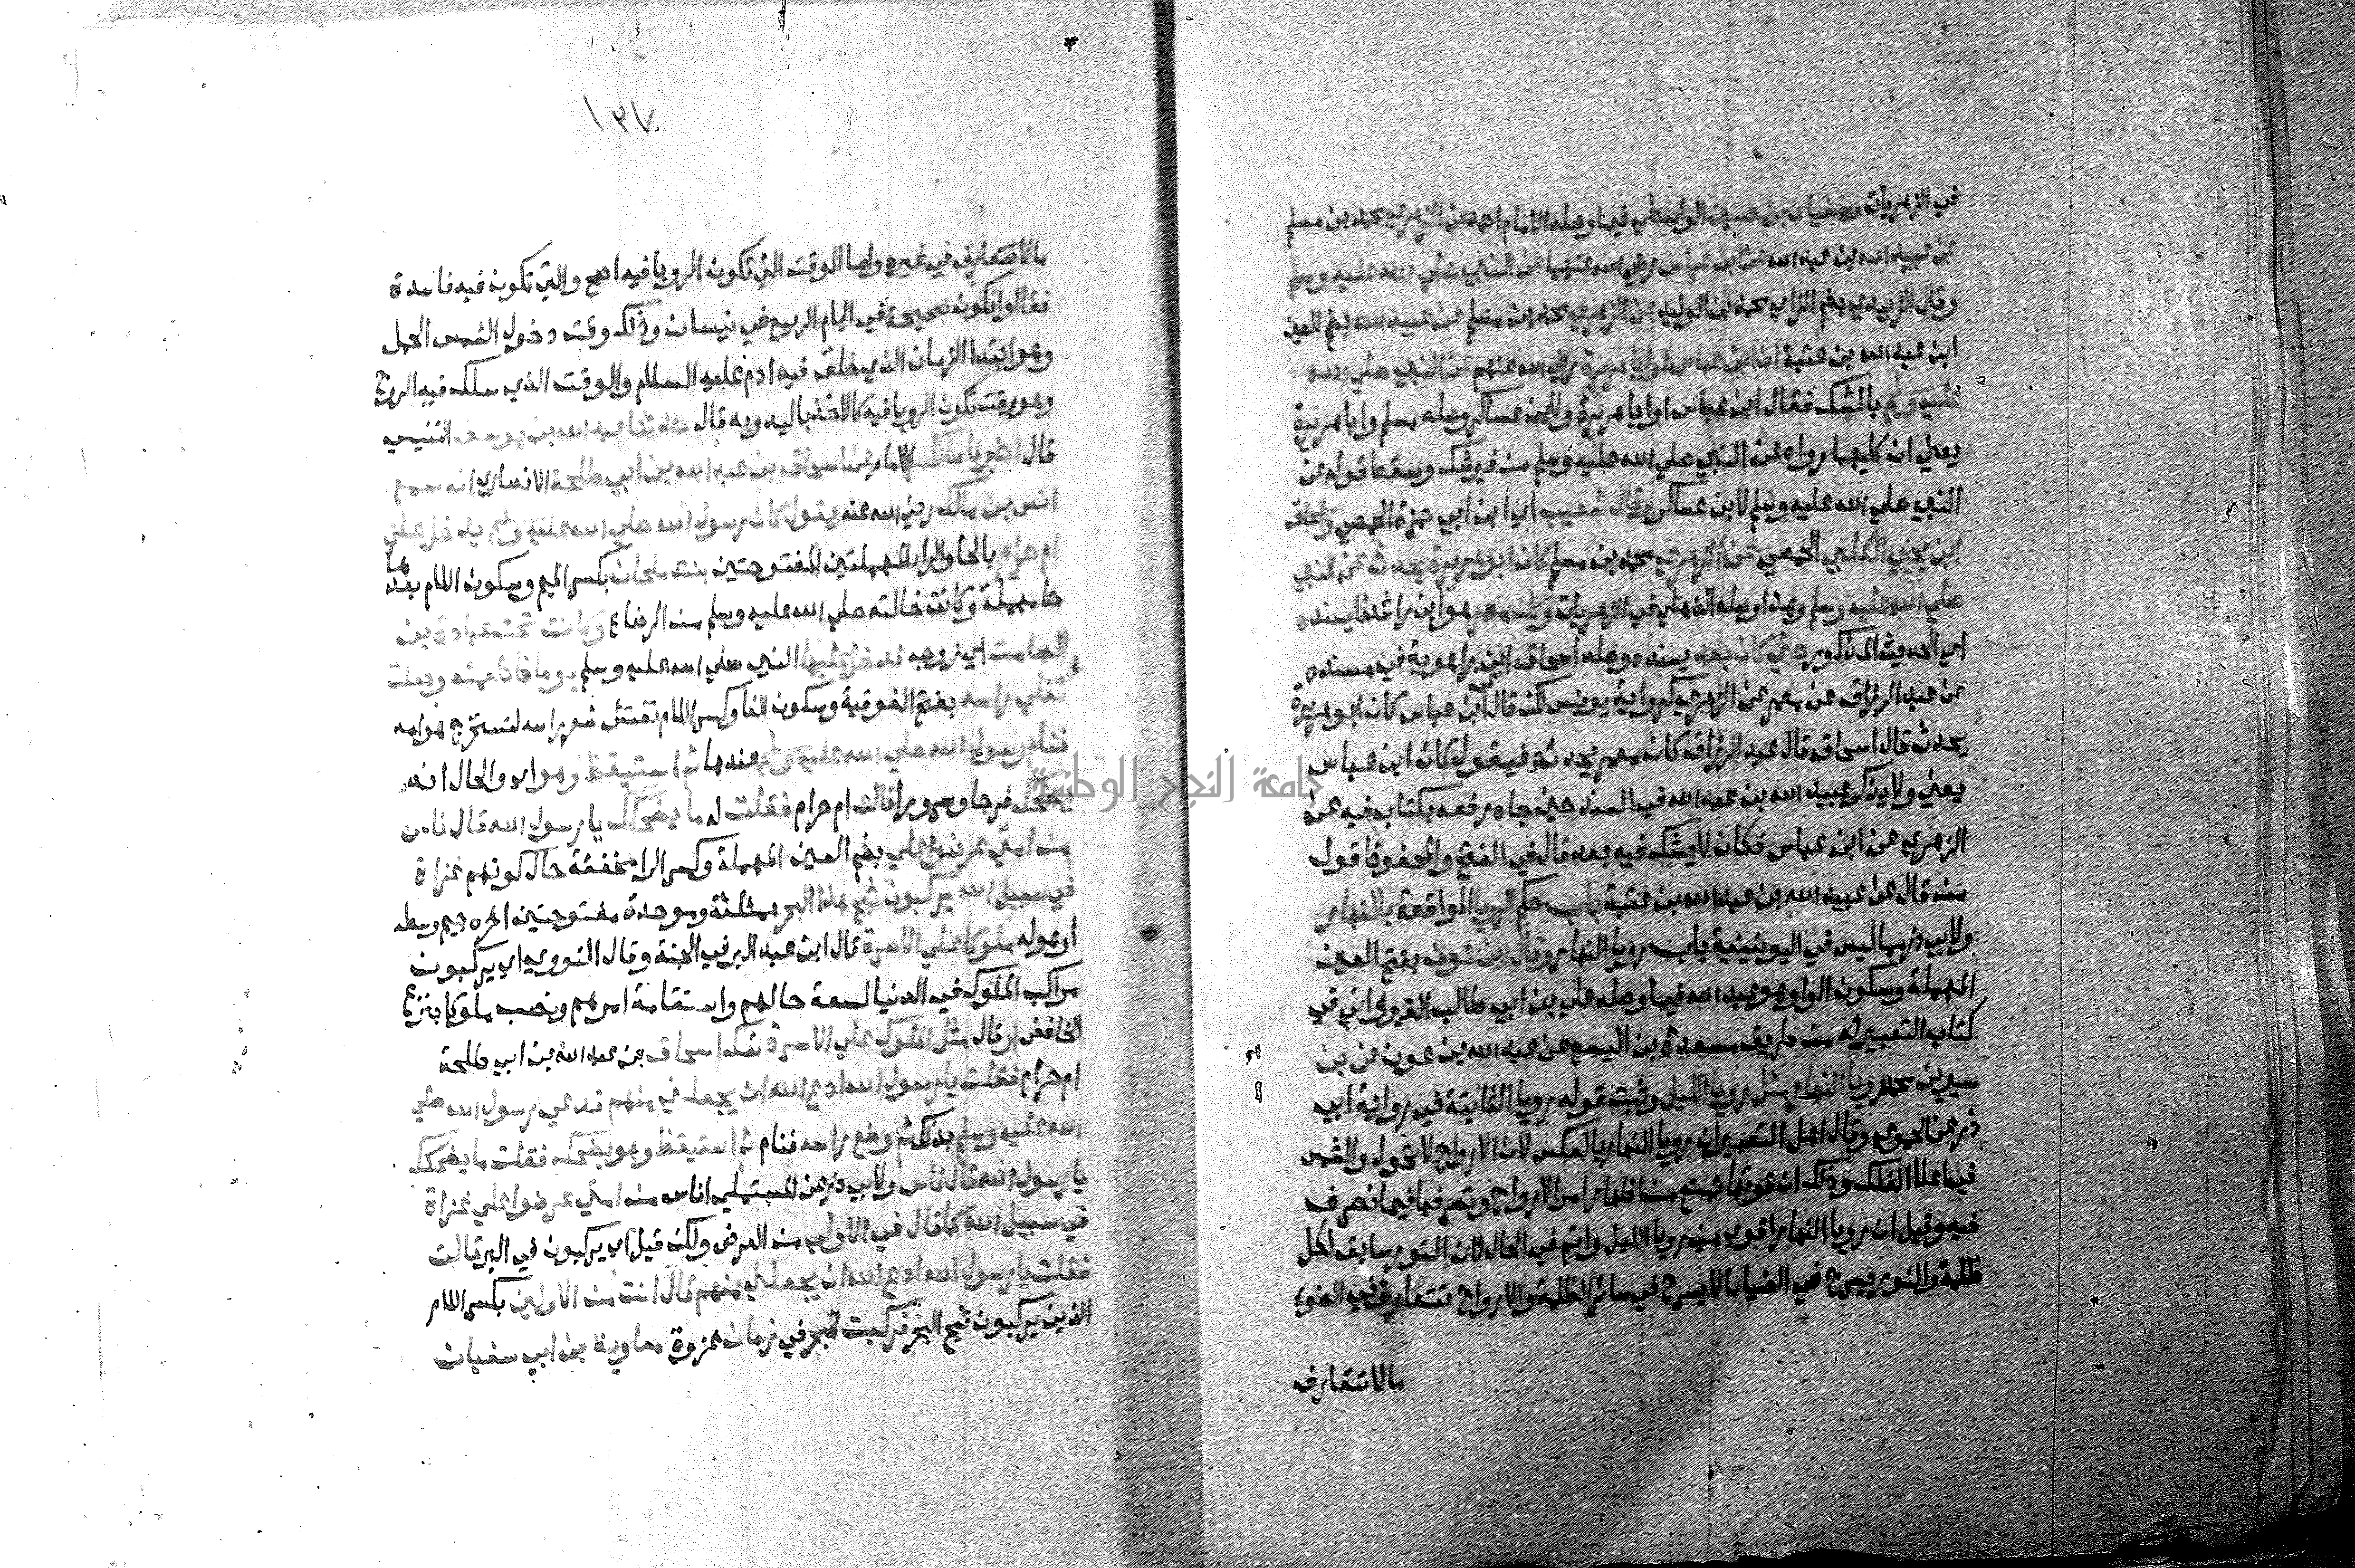 في الزهريات وسفيان بن حسين الواسطي فيما وصله الامام احمد عن الزهري محمد بن مسلم
عن عبيد الله بن عبد الله عن ابن عباس رضي الله عنهما عن النبي صلي الله عليه وسلم
وقال الزبيدي بضم الزاي محمد بن الوليد عن الزهري محمد بن مسلم عن عبيد الله بضم العين
ابن عبد الله بن عتبة ان ابن عباس او ابا هريرة رضي الله عنهم عن النبي صلي الله
عليه وسلم بالشك فقال ابن عباس او ابا هريرة ولابن عساكر وصله مسلم وابا هريرة
يعني ان كليهما رواه عن النبي صلي الله عليه وسلم من غير شك وسقط قوله عن
النبي صلي الله عليه وسلم لابن عساكر وقال شعيب اي ابن ابي حمزة الحمصي واسحاق
ابن يحيي الكلبي الحمصي عن الزهري محمد بن مسلم كان ابو هريرة يحدث عن النبي
صلي الله عليه وسلم وهذا وصله الذهلي في الزهريات وكان معمر هو ابن راشد لا يسنده
اي الحديث المذكور حتي كان بعد يسنده وصله اسحاق ابن راهوية في مسنده
عن عبد الرزاق عن معمر عن الزهري كرواية يونس لكن قال عن ابن عباس كان ابو هريرة
يحدث قال اسحاق قال عبد الرزاق كان معمر يحدث به فيقول كان ابن عباس
يعني ولا يذكر عبيد الله بن عبد الله في السند حتي جاه زمعه بكتاب فيه عن
الزهري عن ابن عباس فكان لا يشك فيه بعد قال في الفتح والمحفوظ قول
من قال عن عبيد الله بن عبد الله بن عتبة باب حكم الرويا الواقعة بالنهار
ولابي ذر مما ليس في اليونينية باب رويا النهار وقال ابن عوف بفتح العين
المهملة وسكون الواو هو عبد الله فيما وصله علي بن ابي طالب القيرواني في
كتاب التعبير له من طريق مسعدة بن اليسع عن عبد الله بن عون عن بن
سيرين محمد رويا النهار مثل رويا الليل وثبت قوله رويا الثابتة في رواية ابي
ذر عن الحموي وقال اهل التعبير ان رويا النهار بالعكس لان الارواح لا تجول والشمس
في اعلا الفلك وذلك ان قوتها تمنع من اظهار امر الارواح وتصرفها فيما تصرف
فيه وقيل ان رويا النهار اقوي من رويا الليل واتم في الحال لان النور سابق لكل
ظلمة والنور يسرح في الضيا ما لا يسرح في سائر الظلمة والارواح تتعارف في الضوء
مالا تتعارف
١٣٧
مالا تتعارف في غيره واما الوقت التي تكون الرويا فيه اصح والتي تكون فيه فاسدة
فقالوا تكون صحيحة في ايام الربيع في نيسان وذلك وقت دخول الشمس الحمل
وهو ابتدا الزمان الذي خلق فيه ادم عليه السلام والوقت الذي سلك فيه الروح
وهو وقت تكون الرويا فيه كالاخذ باليد وبه قال حدثنا عبد الله بن يوسف التنيسي
قال اخبرنا مالك الامام عن اسحاق بن عبد الله بن ابي طلحة الانصاري انه سمع
انس بن مالك رضي الله عنه يقول كان رسول الله صلي الله عليه وسلم يدخل علي
ام حرام بالحا والرا المهملتين المفتوحتين بنت ملحان بكسر الميم وسكون اللام بعدها
حا مهملة وكانت خالته صلي الله عليه وسلم من الرضاع وكانت تحت عبادة بن
الصامت اي زوجه فدخل عليها النبي صلي الله عليه وسلم يوما فاطعمته وجعلت
تفلي راسه بفتح الفوقية وسكون الفا وكسر اللام تفتش شعر راسه لتستخرج هوامه
فنام رسول الله صلي الله عليه وسلم عندها ثم استيقظ وهو اي والحال انه
يضحك فرحا وسرورا قالت ام حرام فقلت له ما يضحكك يا رسول الله قال ناس
من امتي عرضوا علي بضم العين المهملة وكسر الرا مخففة حال كونهم غزاة
في سبيل الله يركبون ثبج هذا البحر بمثلثة وموحدة مفتوحتين اخره جيم وسطه
او هوله ملوكا علي الاسرة قال ابن عبد البر في الجنة وقال النووي اي يركبون
مراكب الملوك في الدنيا لسعة حالهم واستقامة امرهم ونصب ملوكا بنزع
الخافض او قال مثل الملوك علي الاسرة شك اسحاق بن عبد الله بن ابي طلحة
ام حرام فقلت يا رسول الله ادع الله ان يجعلني منهم فدعي رسول الله صلي
الله عليه وسلم بذلك ثم وضع راسه فنام ثم استيقظ وهو يضحك فقلت ما يضحكك
يا رسول الله قال ناس ولابي ذر عن المستملي اناس من امتي عرضوا علي غزاة
في سبيل الله كما قال في الاولي من العرض ولكن قيل اي يركبون في البر قالت
فقلت يا رسول الله ادع الله ان يجعلني منهم قال انت من الاولين بكسر اللام
الذين يركبون ثبج البحر فركبت البحر في زمان غزوة معاوية بن ابي سفيان
جامعة النجاح الوطنية